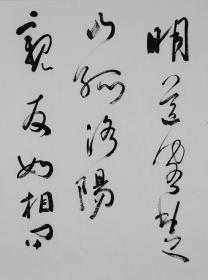 明送客楚
山孤洛陽
親友如相問